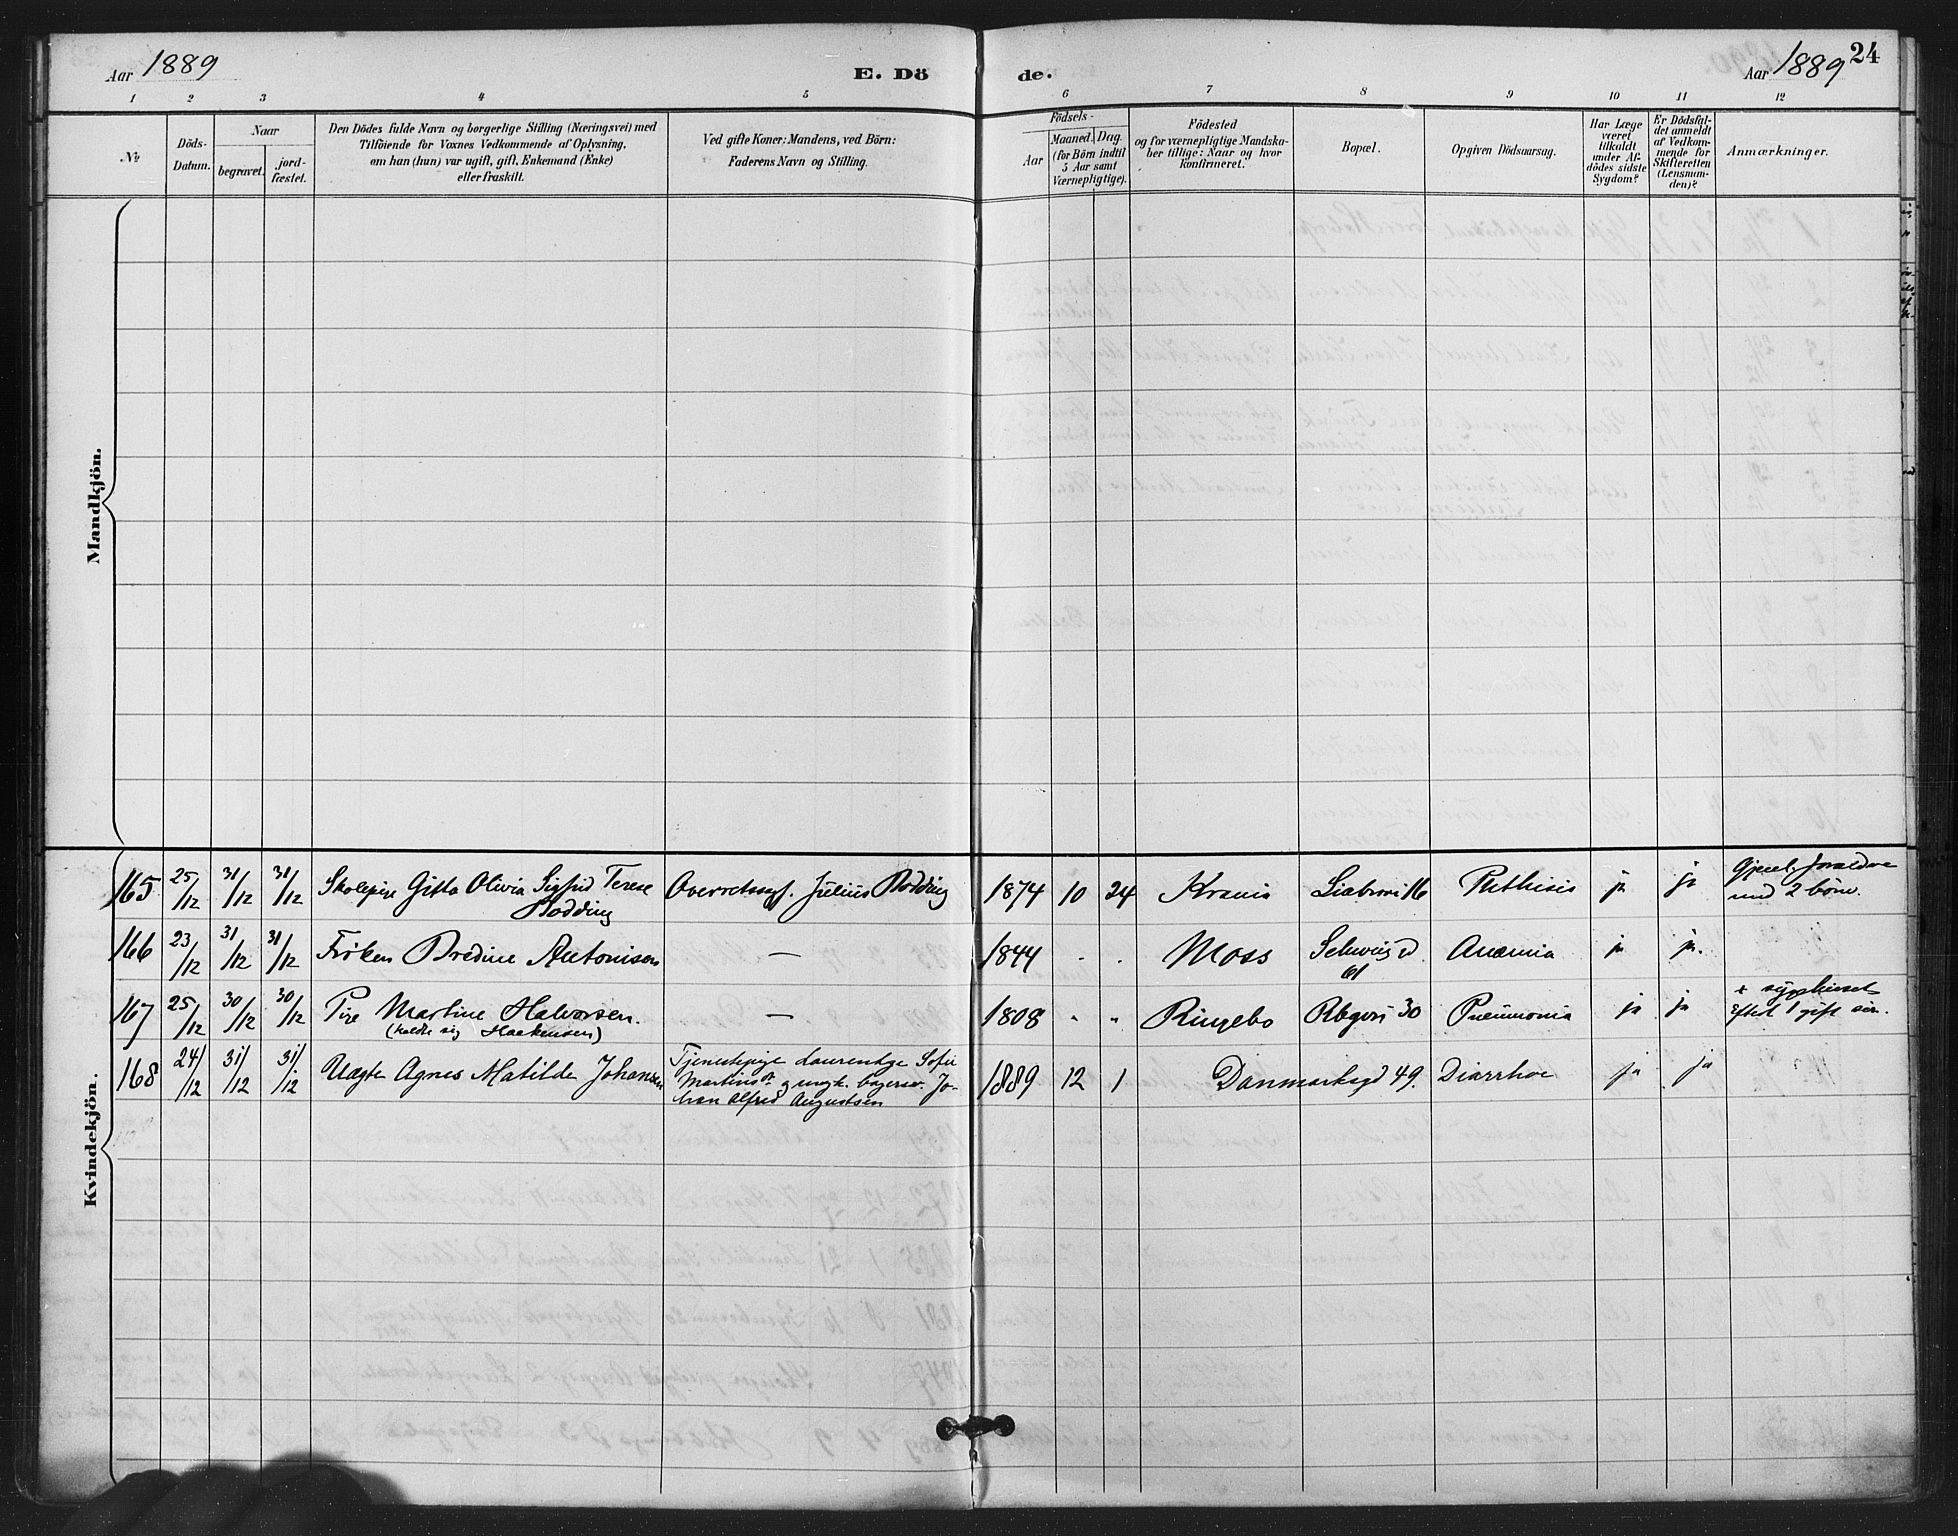 Aar 1889
E. Döde.
Aar 1889
24
1 2 3 4 5 6 7 8 9 10 11 12
No
Döds-Datum.
Naar
begravet.
jord-fæstet.
Den Dödes fulde Navn og borgerlige Stilling (Næringsvei) med
Tilföiende for Voxnes Vedkommende af Oplysning,
om han (hun) var ugift, gift, Enkemand (Enke)
eller fraskilt.
Ved gifte Koner: Mandens, ved Börn:
Faderens Navn og Stilling.
Födsels-
Aar
Maaned. Dag.
(for Börn indtil
5 Aar samt
Værnepligtige).
Födested
og for værnepligtige Mandska-
ber tillige: Naar og hvor
konfirmeret.
Bopæl.
Opgiven Dödsaarsag.
Har Læge
været
tilkaldt
under Af-
dödes sidste
Sygdom?
Er Dödsfal-
det anmeldt
af Vedkom-
mende for
Skifteretten
(Lensman-
den)?
Anmærkninger.
Mandkjön.
Kvindekjön.
165 25/12 31/12 31/12 Skolepige Gitta Olivia Sigfrid Terese Bodding Overretssagf. Julius Bodding 1874 10 24 Krania 16 Phthisis ja ja forældre med 2 börn.
166 23/12 31/12 31/12 Frøken Bredine Antonisen — 1844 - - Moss 61 Anæmia ja ja.
167 25/12 30/12 30/12 Pige Martine Halvorsen. (kaldte sig Haakensen) — 1808 " " Ringebo 30 Pneumonia ja ja gift
168 24/12 31/12 31/12 Uægte Agnes Matilde Johansen Tjenestepige Sofie og ungk. Johan Alfred Augustsen 1889 12 1 Danmarksgd 49. Diarrhoe ja ja